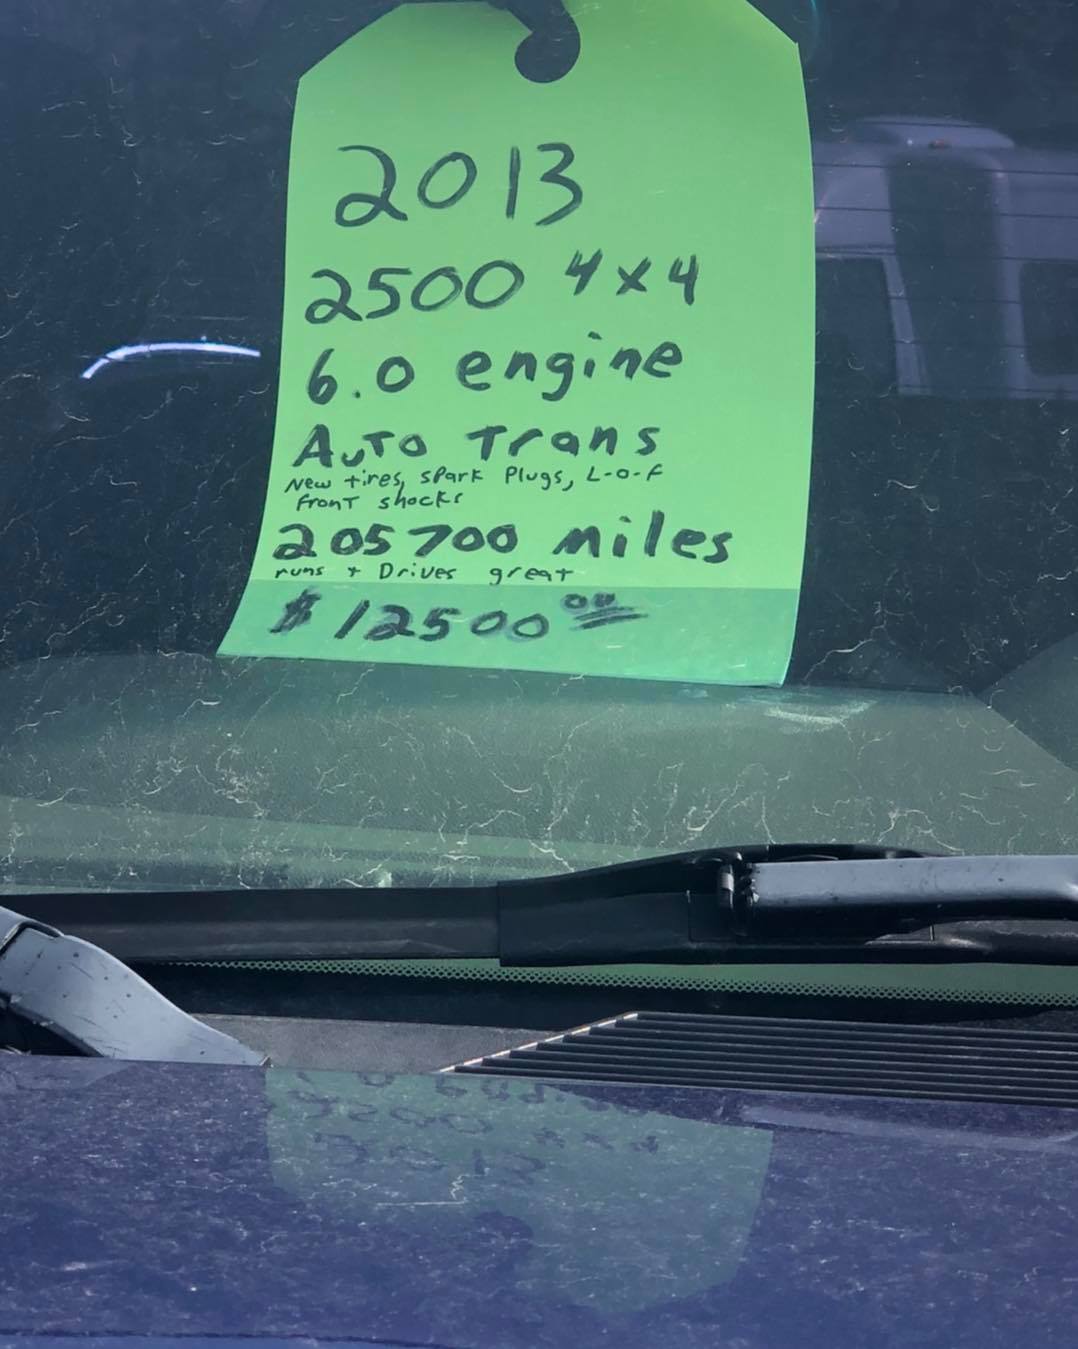 2013
2500 4x4
6.0 engine
Auto Trans
New tires, spark Plugs, L-o-f
front shocks
205700 miles
runs + Drives great
$12500 00